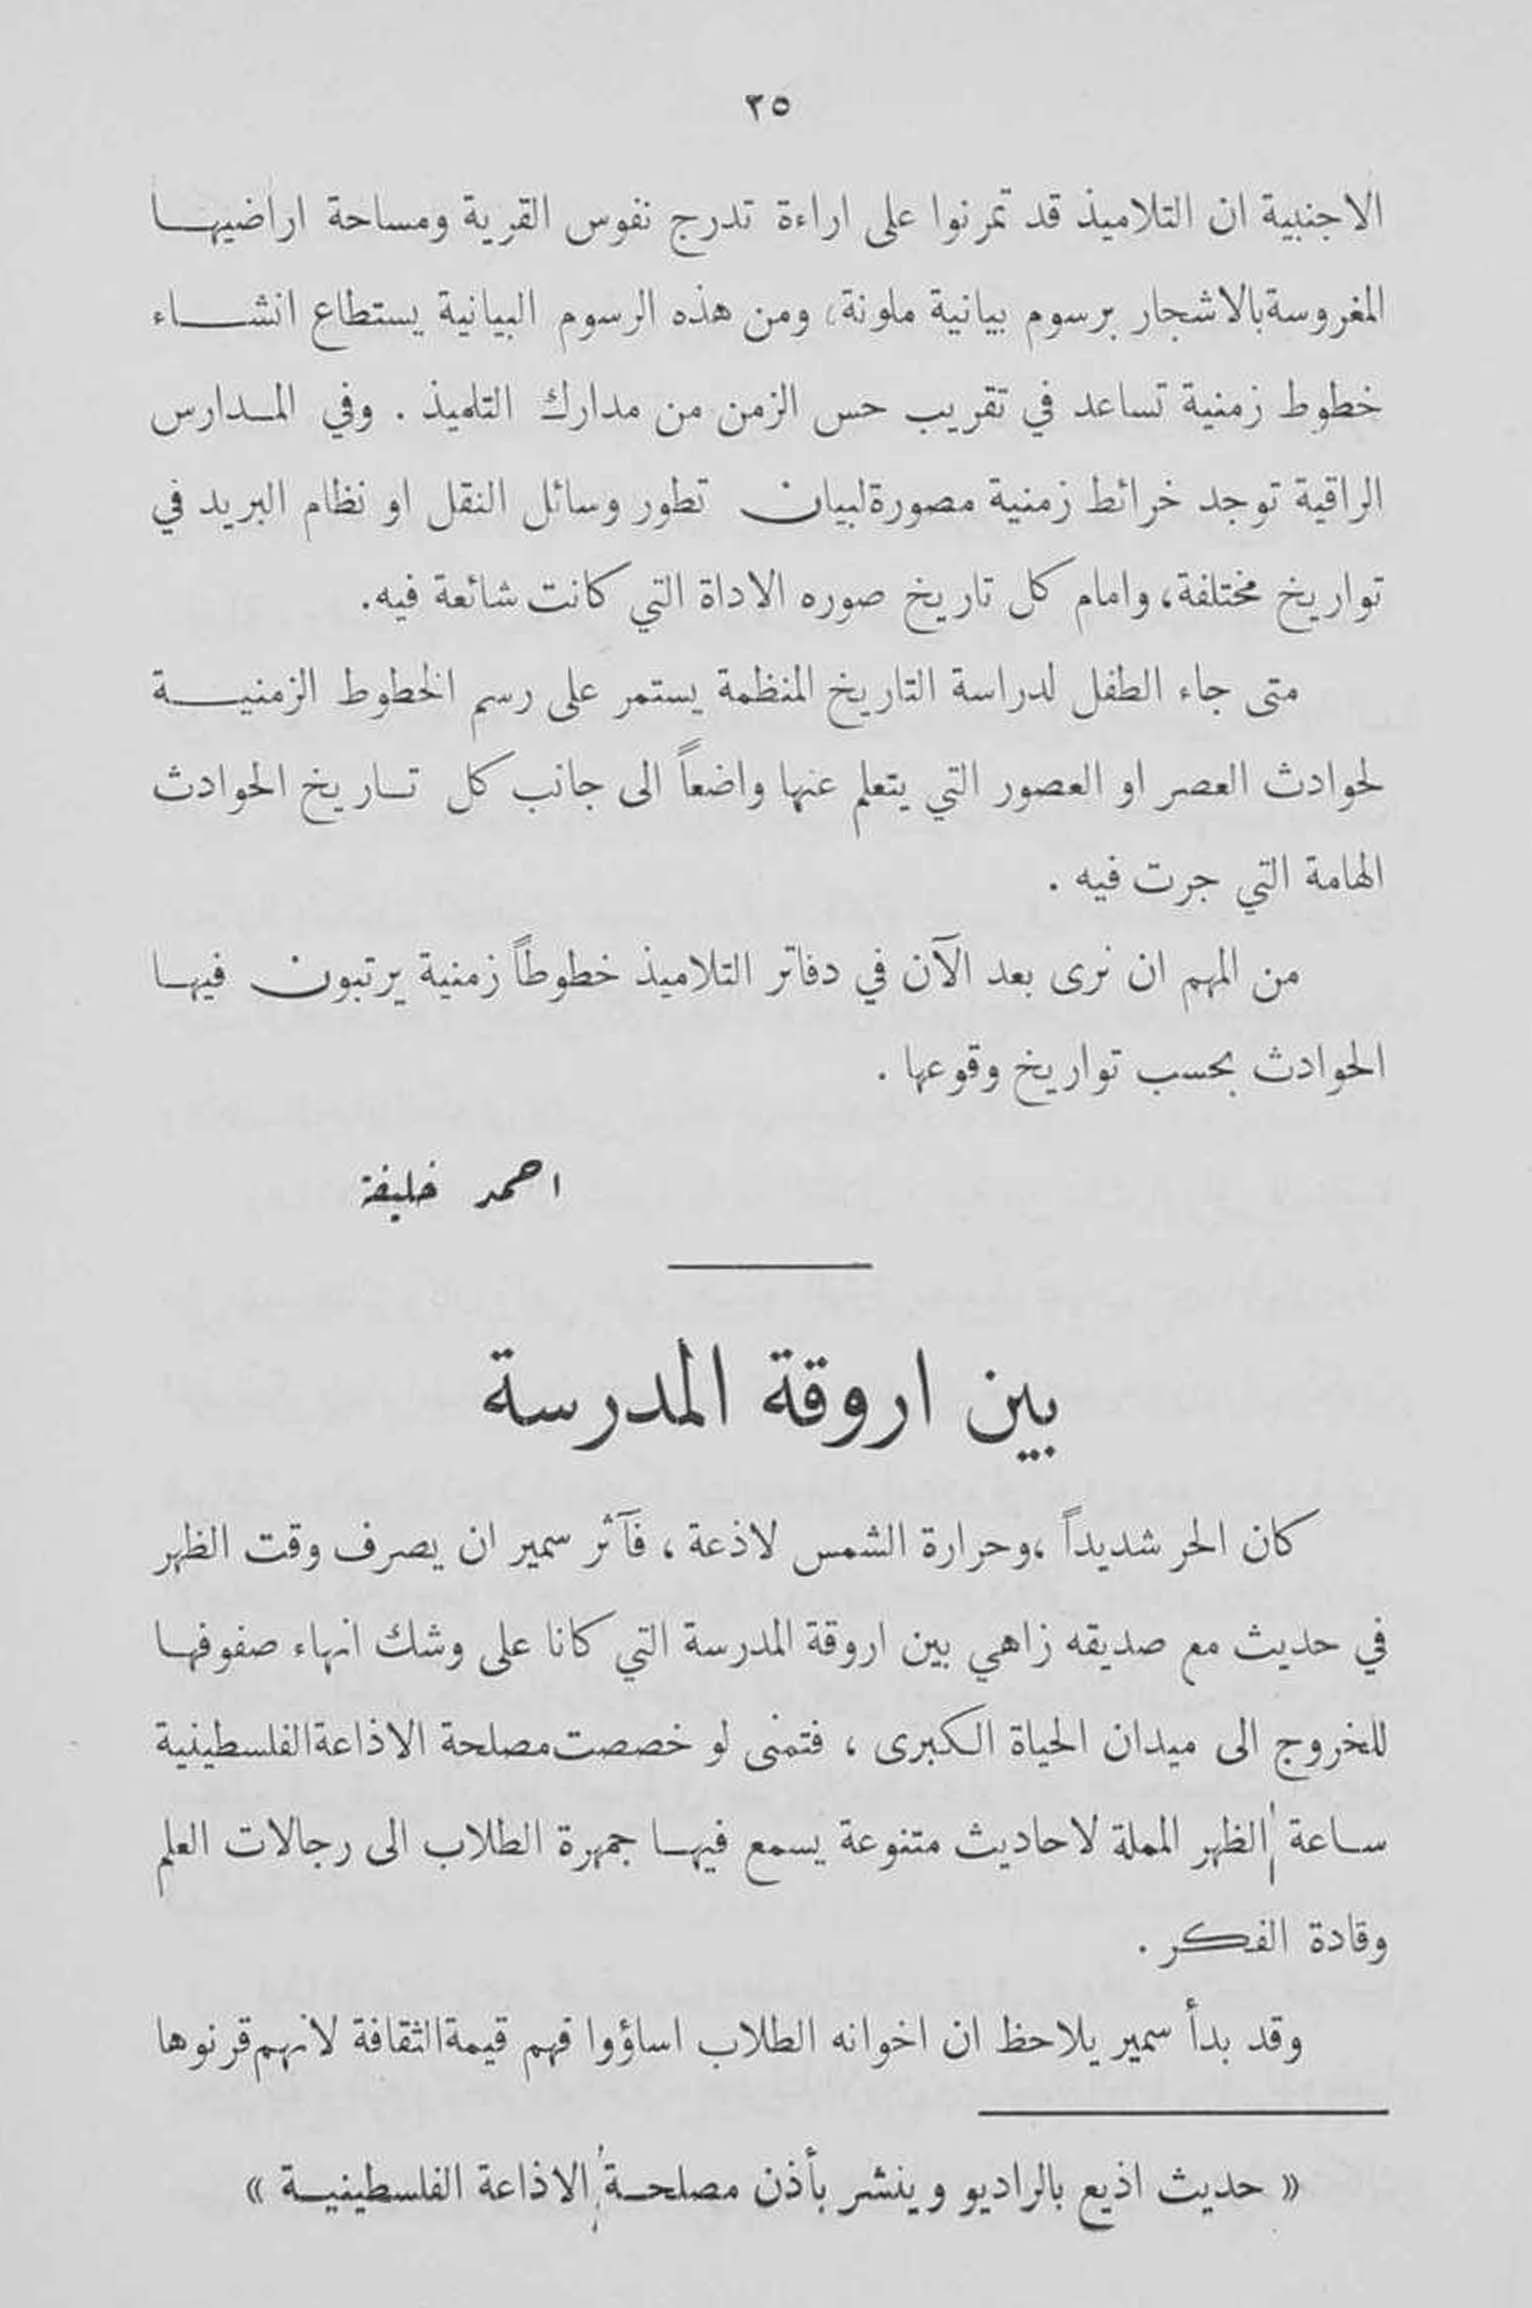 ٣٥
الاجنبية ان التلاميذ قد تمرنوا على اراءة تدرج نفوس القرية ومساحة اراضيها
المغروسة بالاشجار برسوم بيانية ملونة، ومن هذه الرسوم البيانية يستطاع انشاء
خطوط زمنية تساعد في تقريب حس الزمن من مدارك التلميذ . وفي المدارس
الراقية توجد خرائط زمنية مصورة لبيان تطور وسائل النقل او نظام البريد في
تواريخ مختلفة، وامام كل تاريخ صوره الاداة التي كانت شائعة فيه.
متى جاء الطفل لدراسة التاريخ المنظمة يستمر على رسم الخطوط الزمنية
لحوادث العصر او العصور التي يتعلم عنها واضعاً الى جانب كل تاريخ الحوادث
الهامة التي جرت فيه .
من المهم ان نرى بعد الآن في دفاتر التلاميذ خطوطاً زمنية يرتبون فيها
الحوادث بحسب تواريخ وقوعها .
احمد خليفة
بين اروقة المدرسة
كان الحر شديداً ،وحرارة الشمس لاذعة ، فآثر سمير ان يصرف وقت الظهر
في حديث مع صديقه زاهي بين اروقة المدرسة التي كانا على وشك انهاء صفوفها
للخروج الى ميدان الحياة الكبرى ، فتمنى لو خصصت مصلحة الاذاعة الفلسطينية
ساعة الظهر المملة لاحاديث متنوعة يسمع فيها جمهرة الطلاب الى رجالات العلم
وقادة الفكر .
وقد بدأ سمير يلاحظ ان اخوانه الطلاب اساؤوا فهم قيمة الثقافة لانهم قرنوها
« حديث اذيع بالراديو وينشر بأذن مصلحة الاذاعة الفلسطينية »